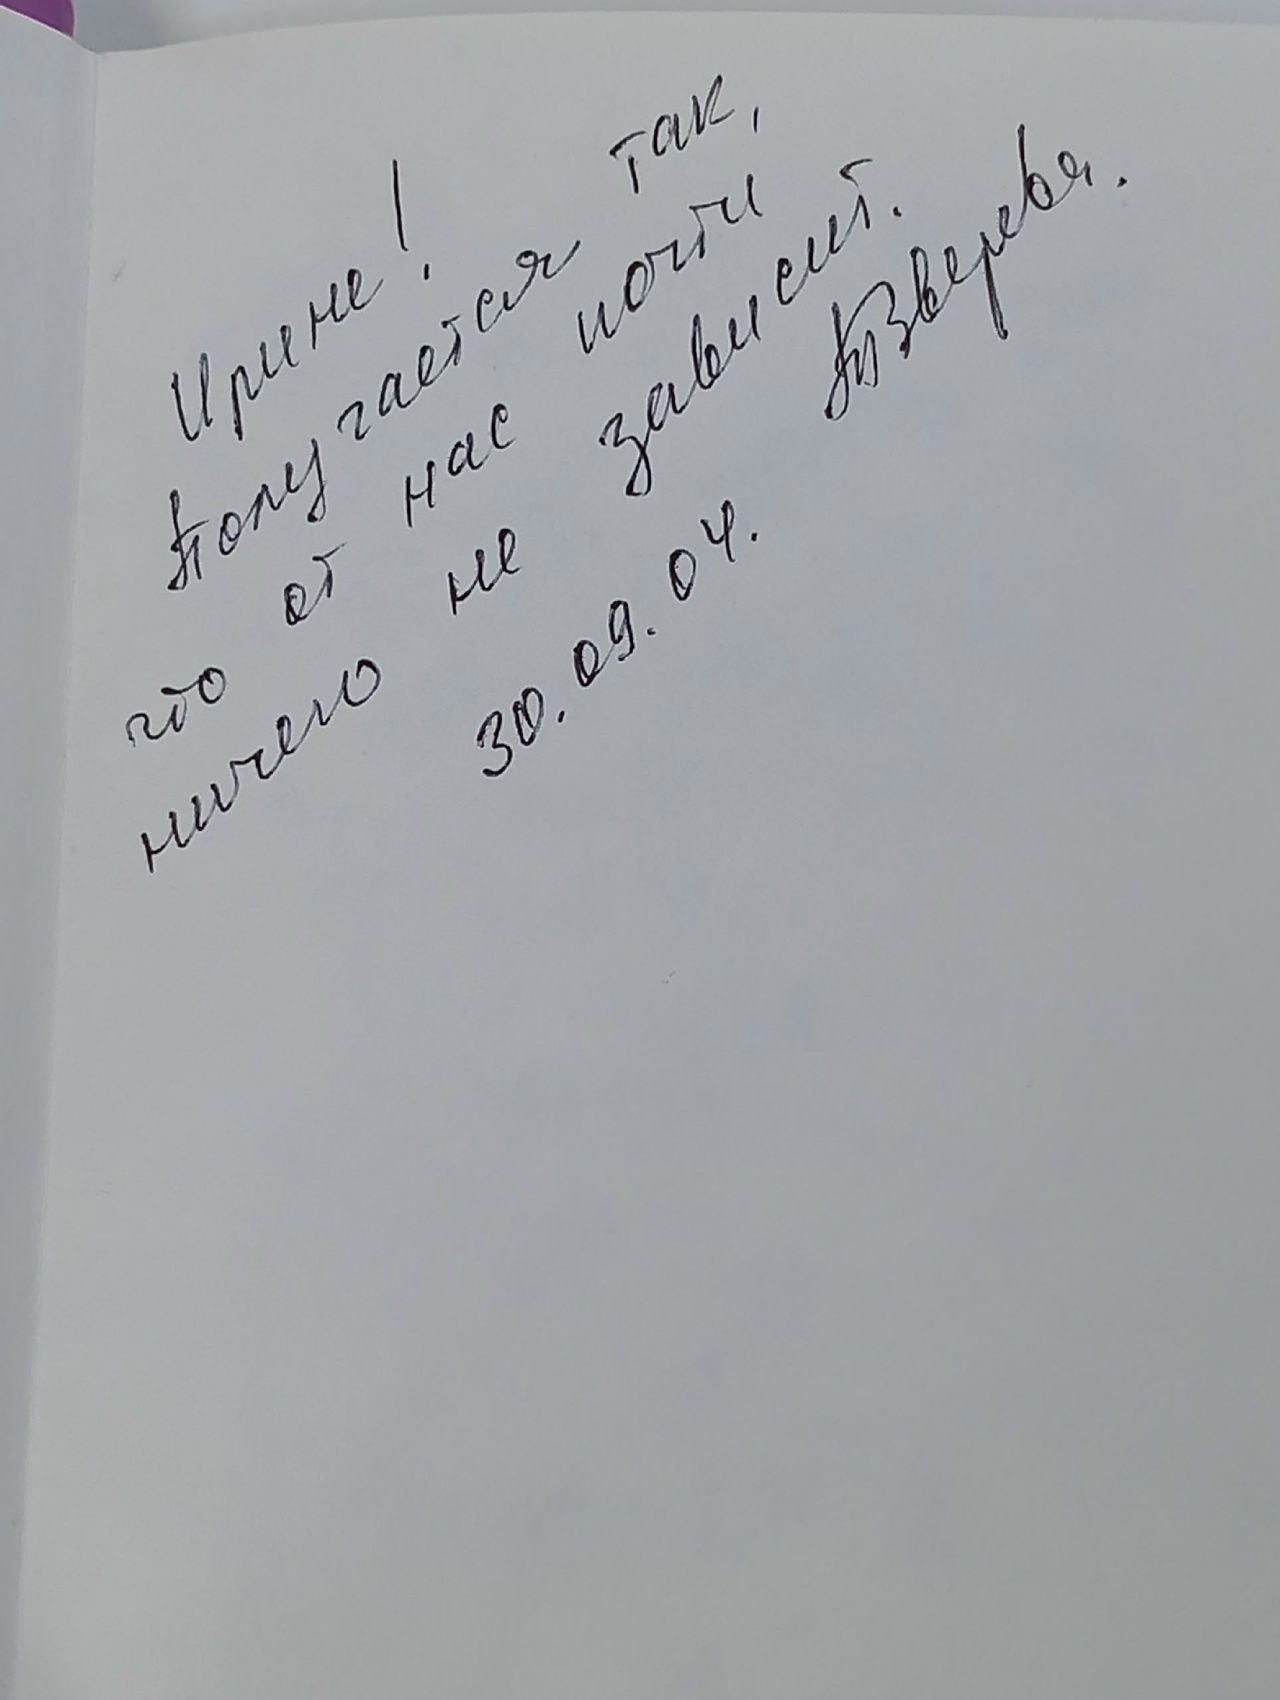 Ирине!
Получается так,
что от нас почти
ничего не зависит.
30.09.04. Зверева.